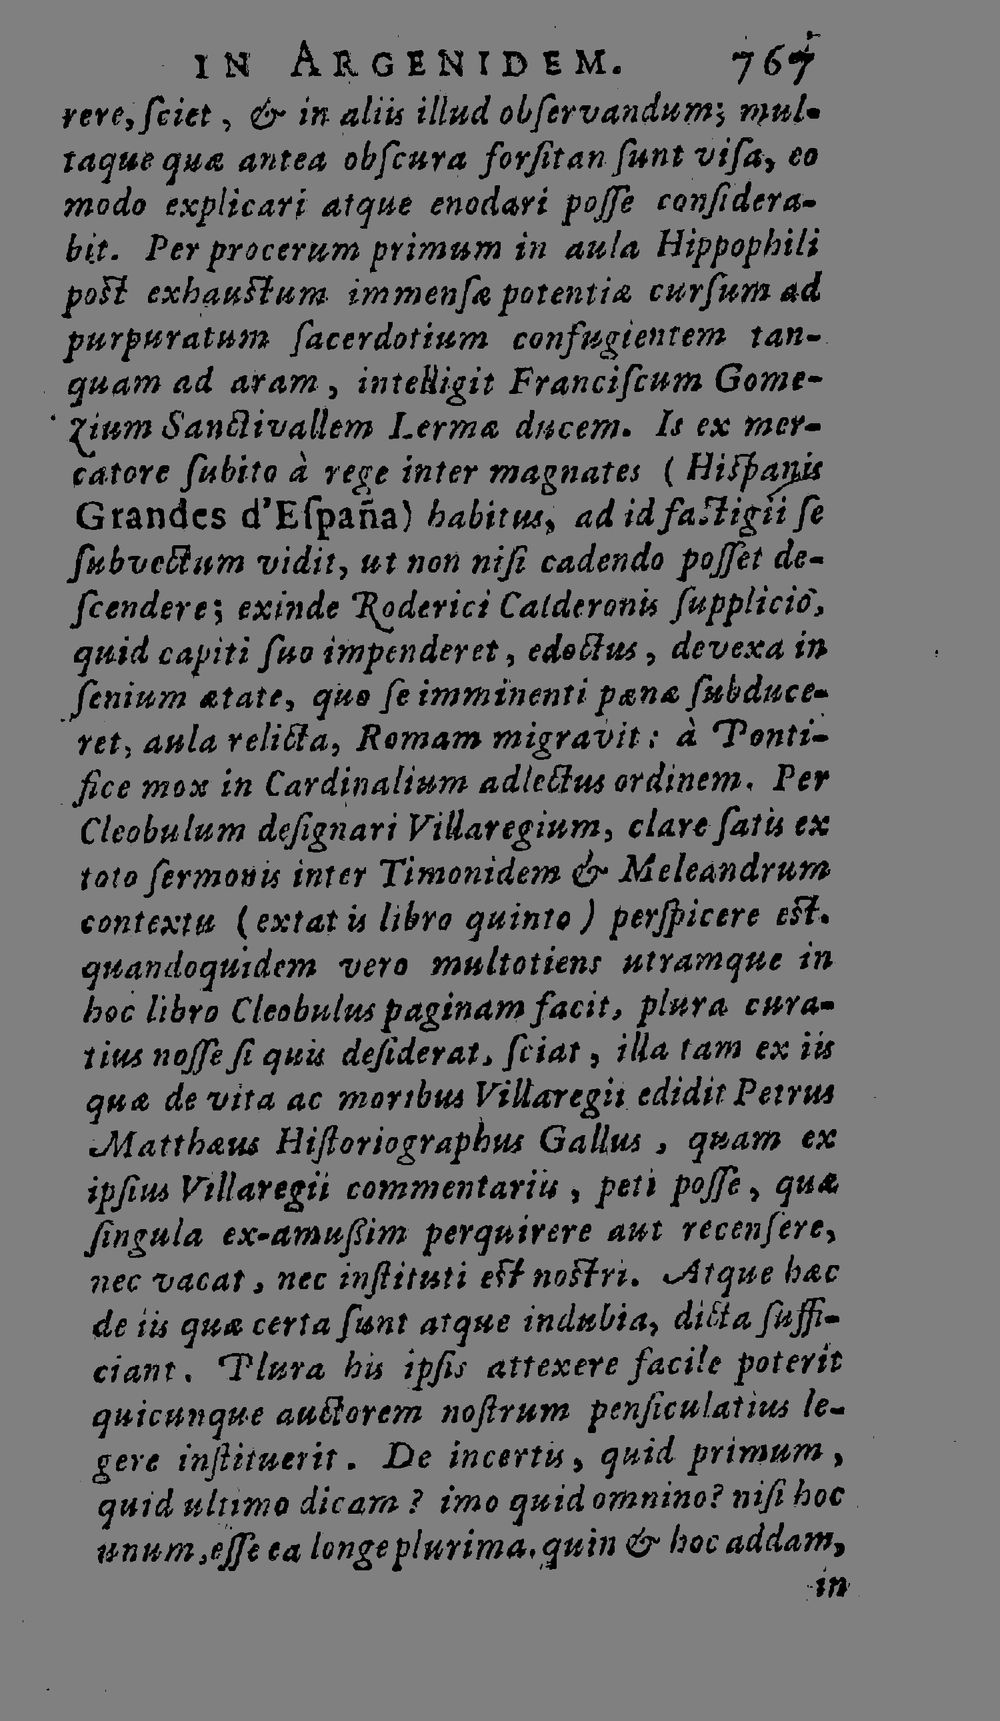 IN ARGENIDEM. 767
rere, ſciet, & in aliis illud obſervandum; mul-
taque quæ antea obſcura forſitan ſunt viſa, eo
modo explicari atque enodari poſſe conſidera-
bit. Per procerum primum in aula Hippophili
poſt exhauſtum immenſæ potentiæ curſum ad
purpuratum ſacerdotium confugientem tan-
quam ad aram, intelligit Franciſcum Gome-
zium Sanctivallem Lermæ ducem. Is ex mer-
catore ſubito à rege inter magnates (Hiſpanis
Grandes d'Eſpaña) habitus, ad id faſtigii ſe
ſubvectum vidit, ut non niſi cadendo poſſet de-
ſcendere; exinde Roderici Calderonis ſupplicio,
quid capiti ſuo impenderet, edoctus, devexa in
ſenium ætate, quo ſe imminenti pænæ ſubduce-
ret, aula relicta, Romam migravit: à Ponti-
fice mox in Cardinalium adlectus ordinem. Per
Cleobulum deſignari Villaregium, clare ſatis ex
toto ſermonis inter Timonidem & Meleandrum
contextu (extat is libro quinto) perſpicere eſt.
quandoquidem vero multotiens utramque in
hoc libro Cleobulus paginam facit, plura cura-
tius noſſe ſi quis deſiderat, ſciat, illa tam ex iis
quæ de vita ac moribus Villaregii edidit Petrus
Matthæus Hiſtoriographus Gallus, quam ex
ipſius Villaregii commentariis, peti poſſe, quæ
ſingula ex-amuſſim perquirere aut recenſere,
nec vacat, nec inſtituti eſt noſtri. Atque hæc
de iis quæ certa ſunt atque indubia, dicta ſuffi-
ciant. Plura his ipſis attexere facile poterit
quicunque auctorem noſtrum penſiculatius le-
gere inſtituerit. De incertis, quid primum,
quid ultimo dicam? imo quid omnino? niſi hoc
unum, eſſe ea longe plurima. quin & hoc addam,
in